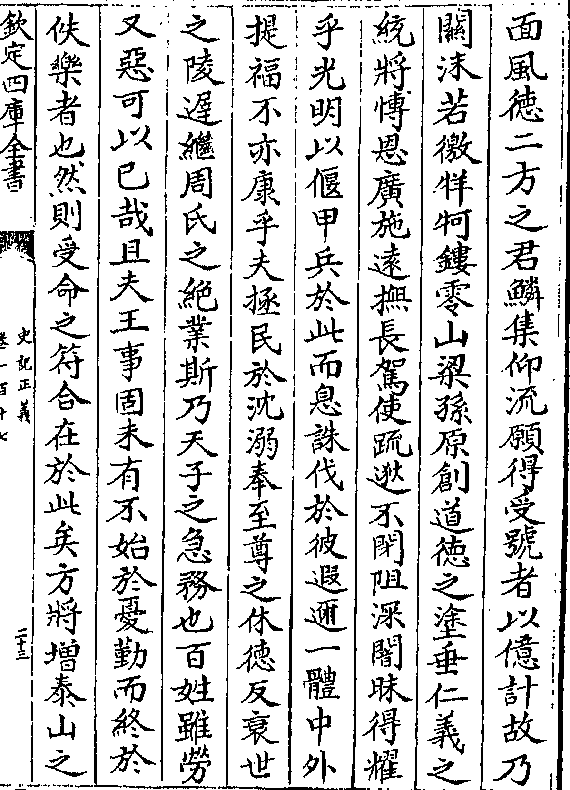 面風德二方之君鱗集仰流願得受號者以億計故乃
關沫若徼牂牁鏤零山梁孫原創道德之塗垂仁義之
統將博恩廣施逺撫長駕使疏逖不閉阻深闇昧得耀
乎光明以偃甲兵於此而息誅伐於彼遐邇一體中外
提福不亦康乎夫拯民於沈溺奉至尊之休德反衰世
之陵遲繼周氏之絶業斯乃天子之急務也百姓雖勞
又惡可以已哉且夫王事固未有不始於憂勤而終於
佚樂者也然則受命之符合在於此矣方將增泰山之
欽定四庫全書
史記正義
卷一百十七
二十三